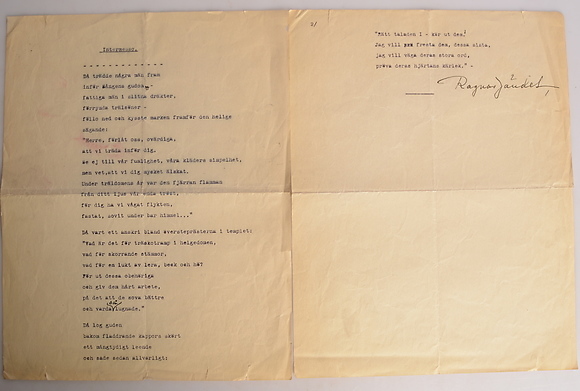 Intermezzo.
Då trädde några män fram
inför Mångens gudom -
fattiga män i slitna dräkter,
förrymda trälsöner -
föllo ned och kysste marken framför den helige
sägande:
"Herre, förlåt oss, ovärdiga,
att vi träda inför dig.
Se ej till vår fumlighet, våra kläders simpelhet,
men vet,att vi dig mycket älskat.
Under träldomens år var den fjärran flamman
från ditt ljus vår enda tröst,
för dig ha vi vågat flykten,
fastat, sovit under bar himmel..."
Då vart ett anskri bland översteprästerna i templet:
"Vad är det för träskotramp i helgedomen,
vad för skorrande stämmor,
vad för en lukt av lera, beck och hö?
För ut dessa obehöriga
och giv dem hårt arbete,
på det att de sova bättre
och varda lugnade."
Då log guden
bakom fladdrande lappors skört
ett mångtydigt leende
och sade sedan allvarligt:
2/
"Rätt taladen I - kär ut dem!
Jag vill fresta dem, dessa sista,
jag vill väga deras stora ord,
pröva deras hjärtans kärlek." -
Ragnar Jändel,